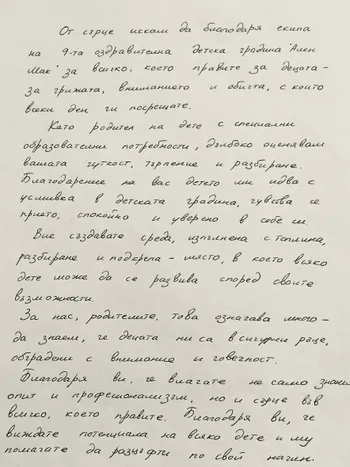 От сърце искам да благодаря екипа
на 9-та оздравителна детска градина "Ален
Мак" за всичко, което правите за децата -
за грижата, вниманието и обичта, с които
всеки ден ги посрещате.
Като родител на дете с специални
образователни потребности, дълбоко оценявам
вашата чуткост, търпение и разбиране.
Благодарение на вас детето ми идва с
усмивка в детската градина, чувства се
прието, спокойно и уверено в себе си
Вие създавате среда, изпълнена с топлина,
разбиране и подкрепа - място, в което всяко
дете може да се развива според своите
възможности.
За нас, родителите, това означава много -
да знаем, че децата ни са в сигурни ръце,
обградени с внимание и човечност.
Благодаря ви, че влагате не само знания
опит и професионализъм, но и сърце във
всичко, което правите. Благодаря ви, че
виждате потенциала на всяко дете и му
помагате да разцъфти по свой начин.